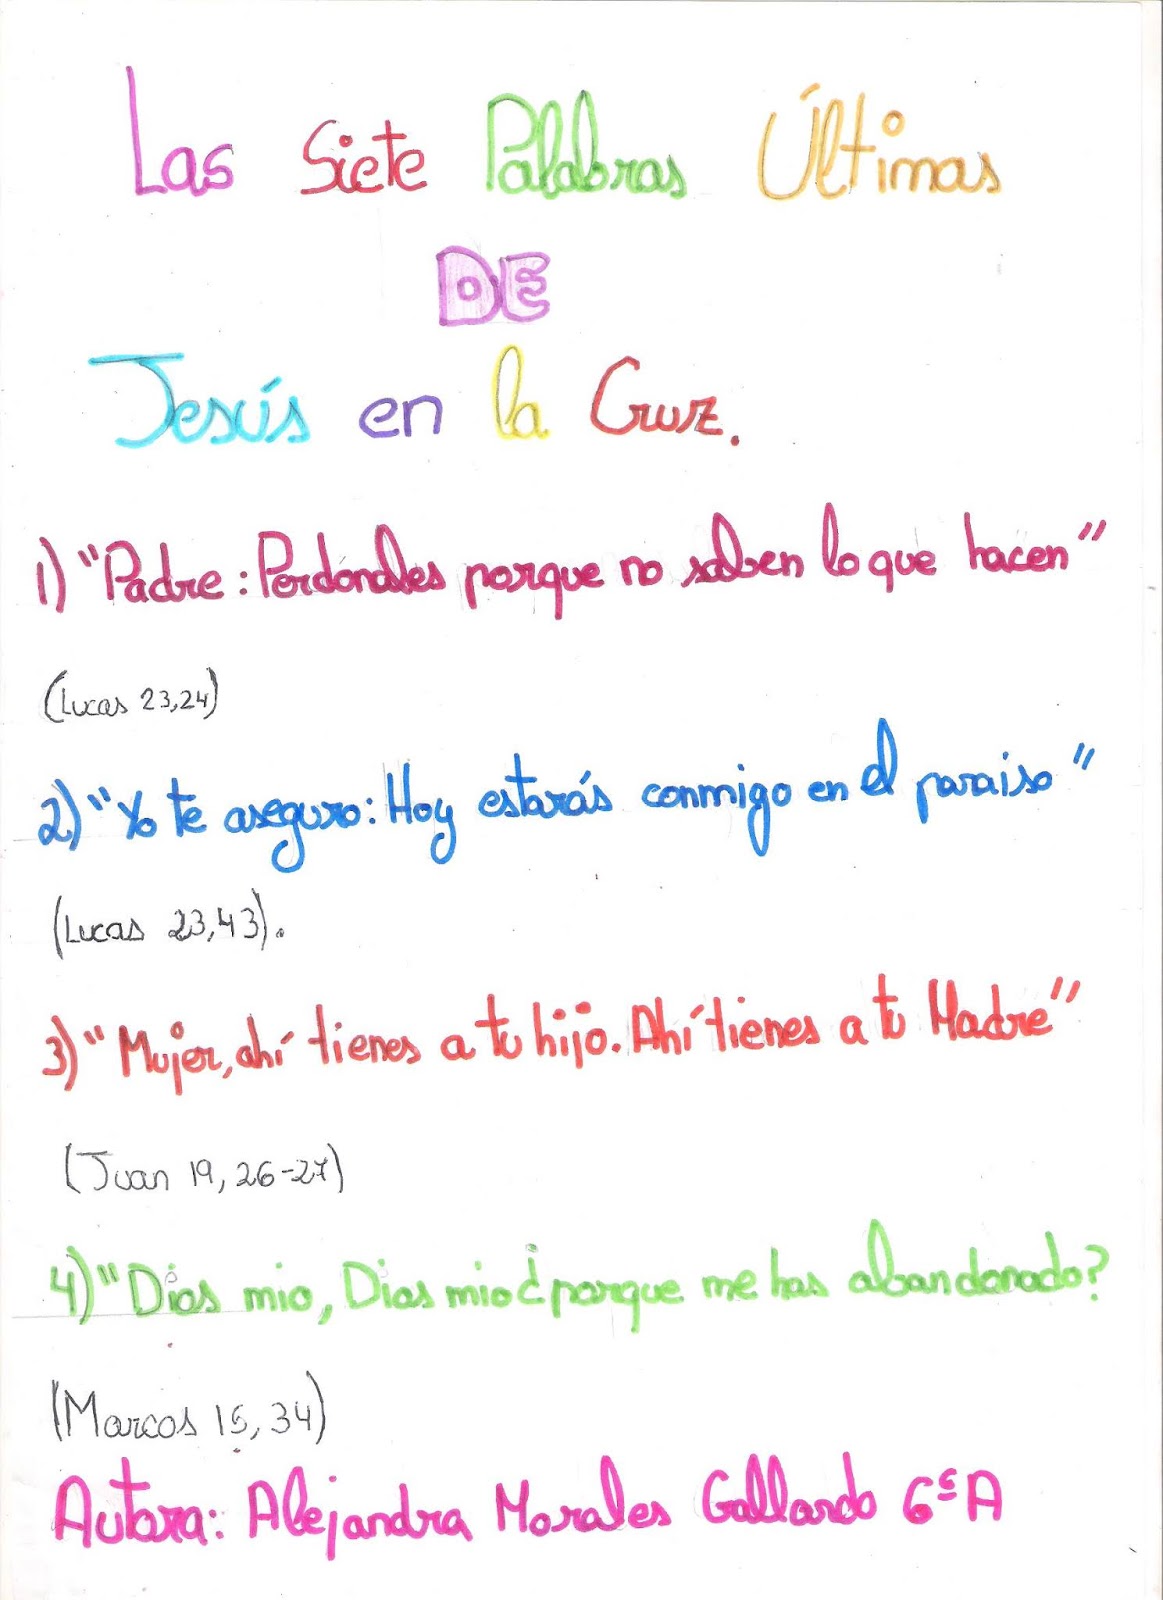 Las Siete Palabras Últimas
DE
Jesús en la Cruz.
1) "Padre: Perdónales porque no saben lo que hacen"
(Lucas 23,24)
2) "Yo te aseguro: Hoy estarás conmigo en el paraiso"
(Lucas 23,43).
3) "Mujer, ahí tienes a tu hijo. Ahí tienes a tu Madre"
(Juan 19, 26-27)
4) "Dios mio, Dios mio ¿porque me has abandonado?
(Marcos 15, 34)
Autora: Alejandra Morales Gallardo 6º A